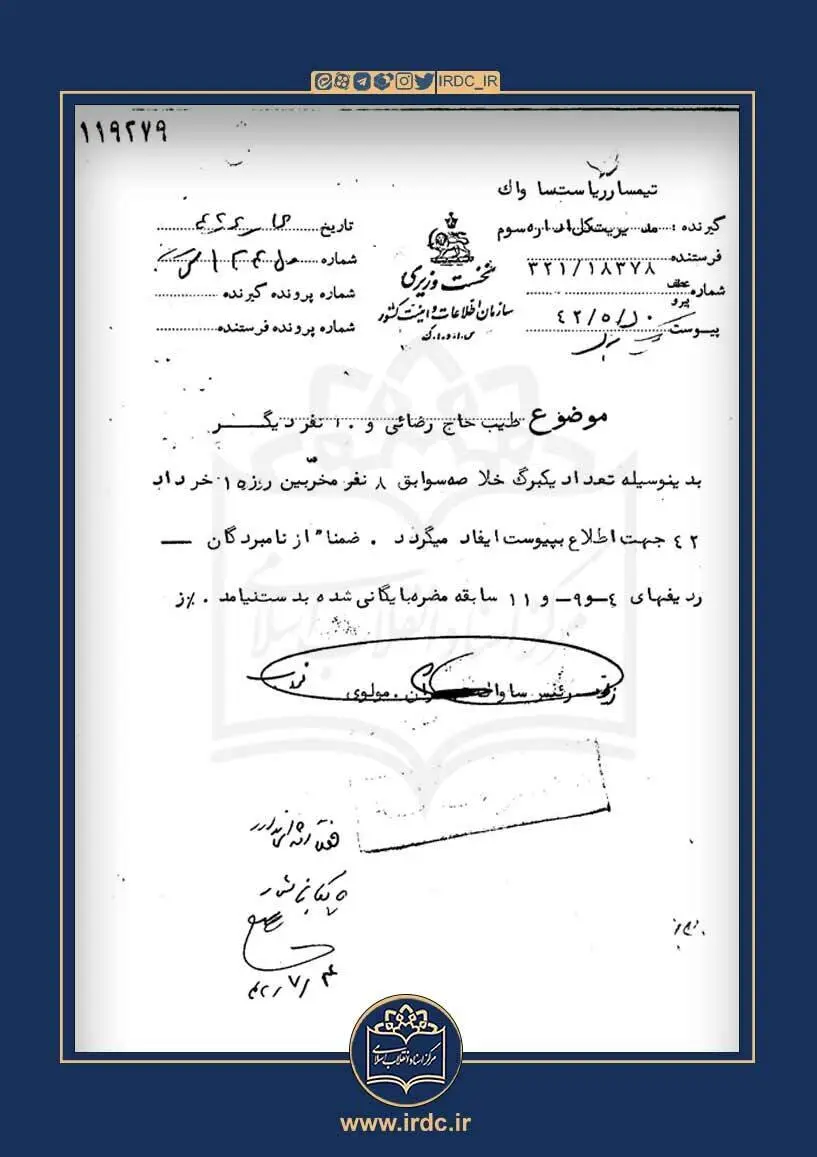 IRDC_IR
۱۱۹۲۷۹
تیمسار ریاست ساواک
گیرنده : مدیریت کل اداره سوم
فرستنده
شماره عطف پیرو ۳۲۱/۱۸۳۷۸
۴۲/۵/۱۰
پیوست
نخست وزیری
سازمان اطلاعات و امنیت کشور
س.ا.و.ا.ک
تاریخ
شماره
شماره پرونده گیرنده
شماره پرونده فرستنده
موضوع طیب حاج رضائی و ۱۰ نفر دیگر
بدینوسیله تعداد یکبرگ خلاصه سوابق ۸ نفر مخربین روز ۱۵ خرداد
۴۲ جهت اطلاع بپیوست ایفاد میگردد . ضمنا" از نامبردگان —
ردیفهای ۴-و۹- و ۱۱ سابقه مضره بایگانی شده بدست نیامد .٪ ز
رئیس ساواک تهران . مولوی
بایگانی شود
۴۲/۷/۴
مرکز اسناد انقلاب اسلامی
مرکز اسناد انقلاب اسلامی
www.irdc.ir